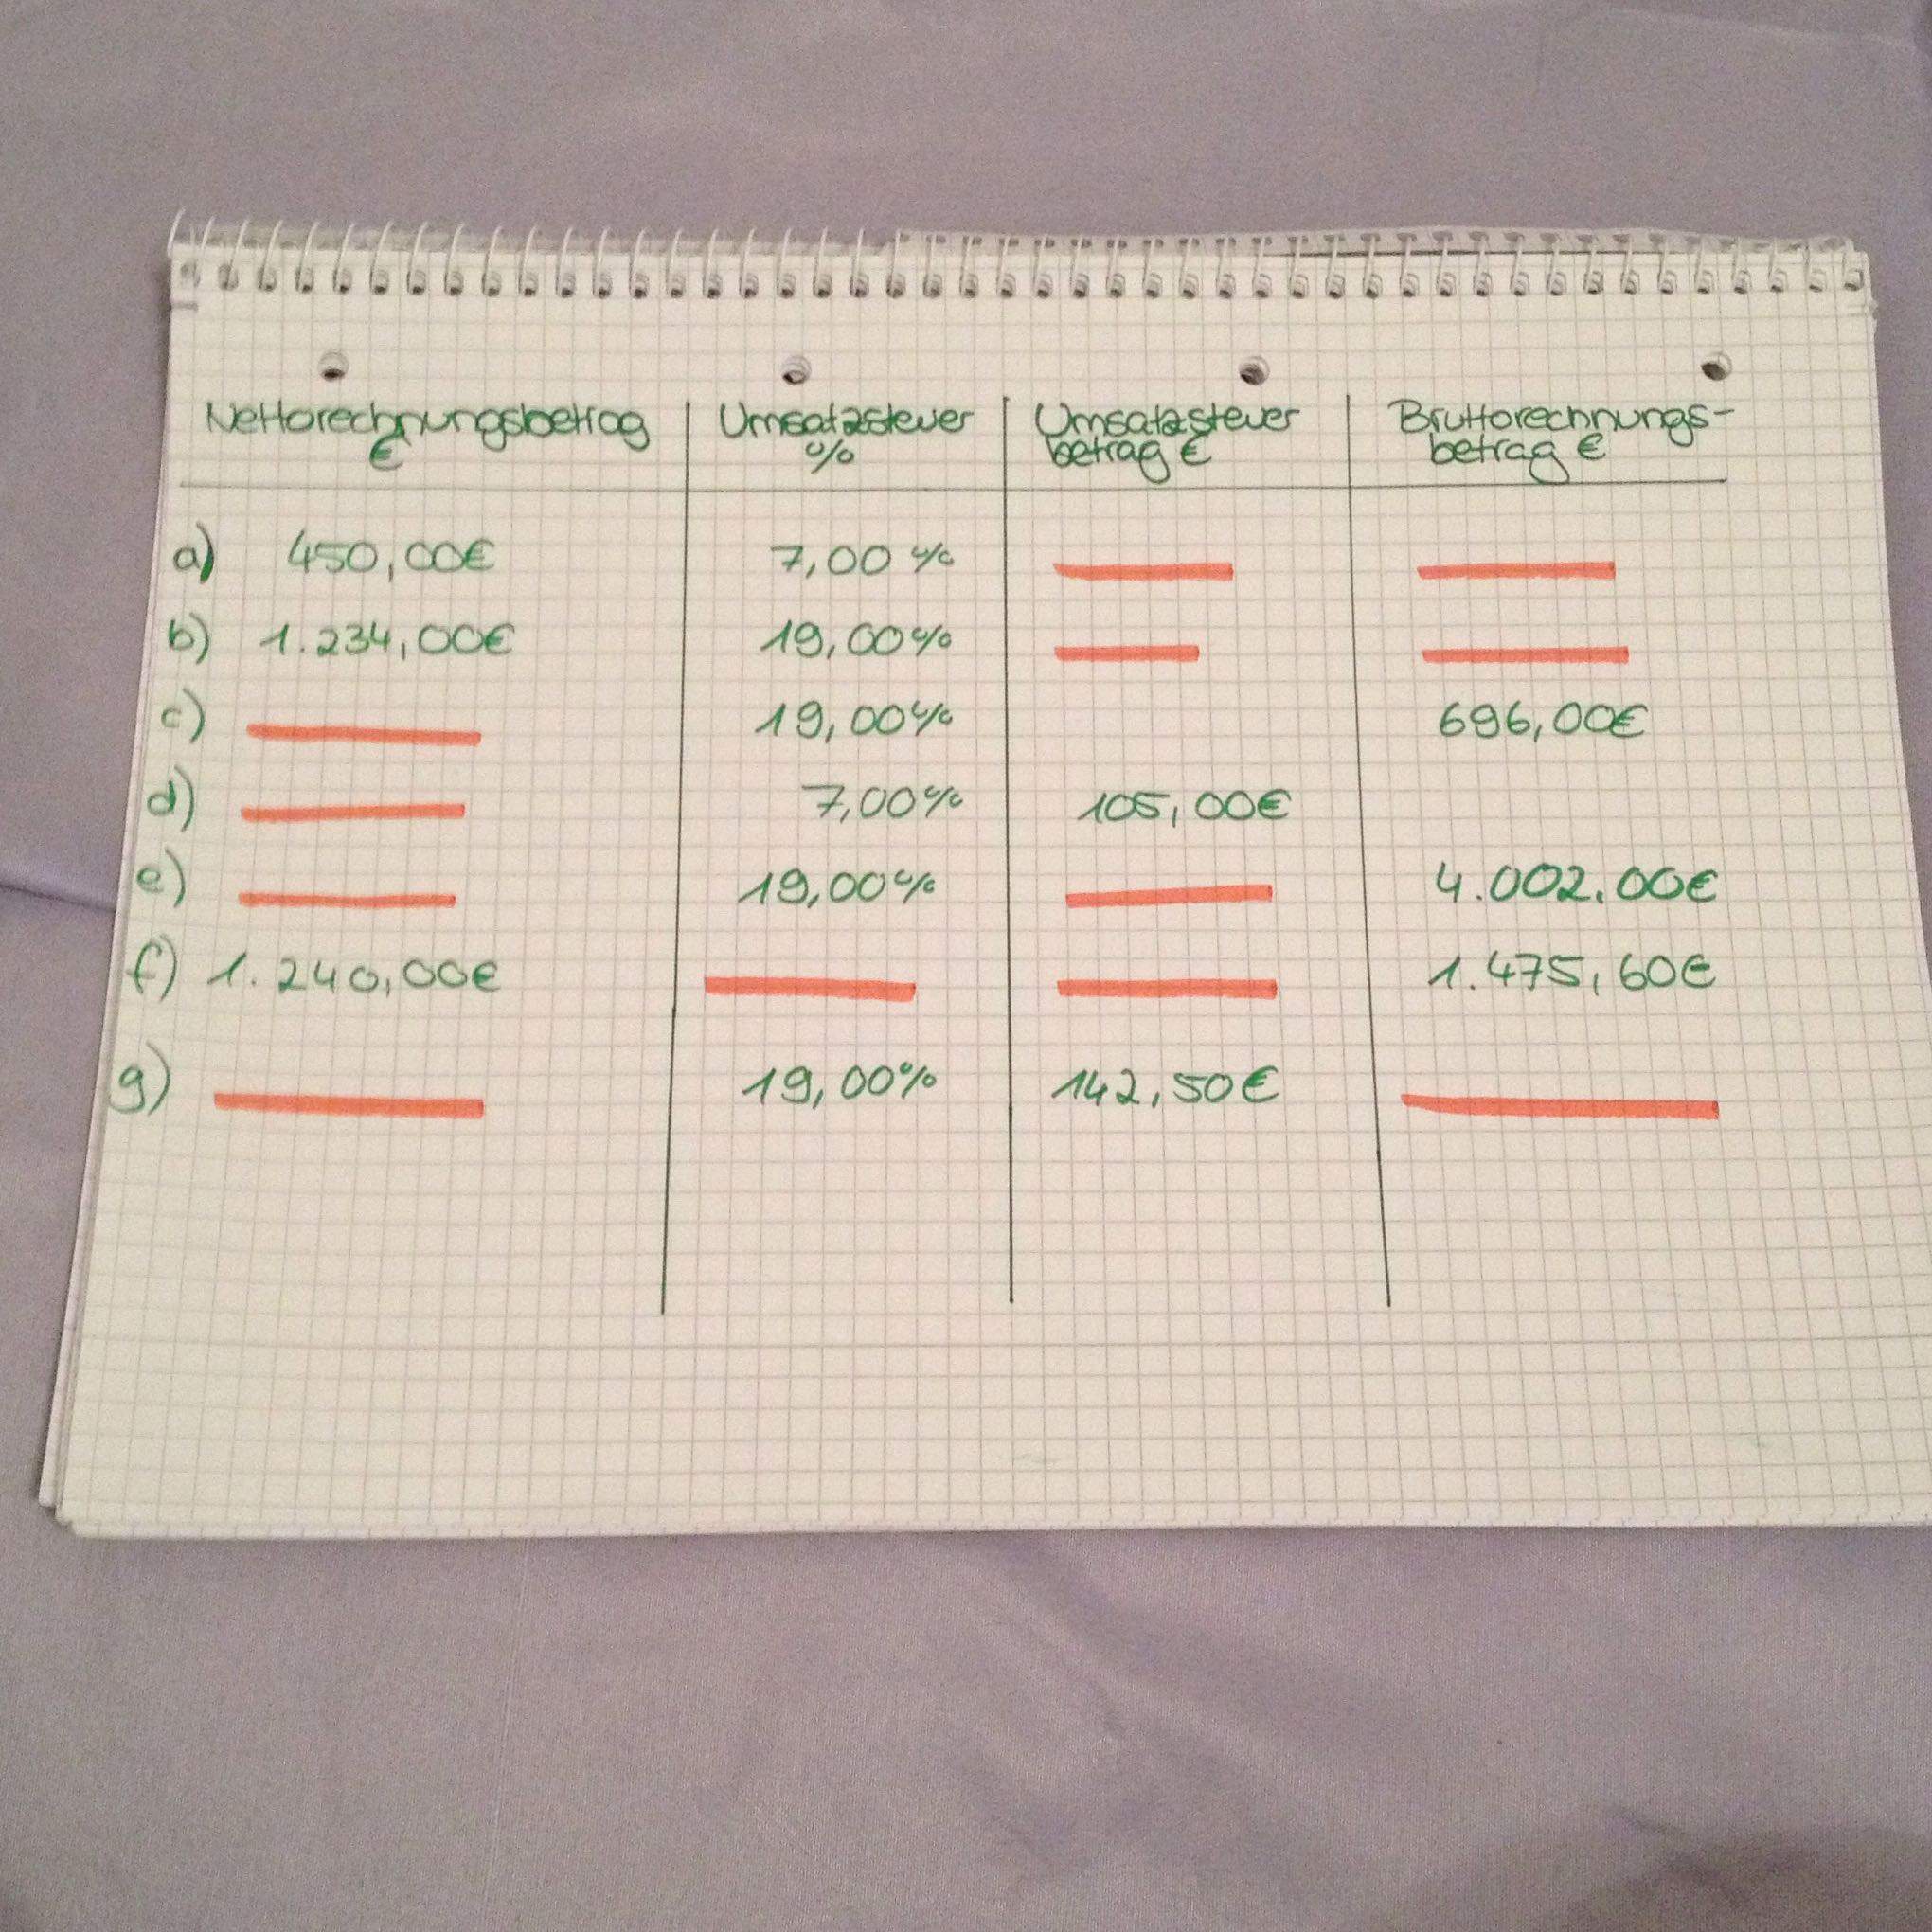 Nettorechnungsbetrag € | Umsatzsteuer % | Umsatzsteuer betrag € | Bruttorechnungs- betrag €
a) 450,00€ 7,00%
b) 1.234,00€ 19,00%
c) 19,00% 696,00€
d) 7,00% 105,00€
e) 19,00% 4.002.00€
f) 1.240,00€ 1.475,60€
g) 19,00% 142,50€